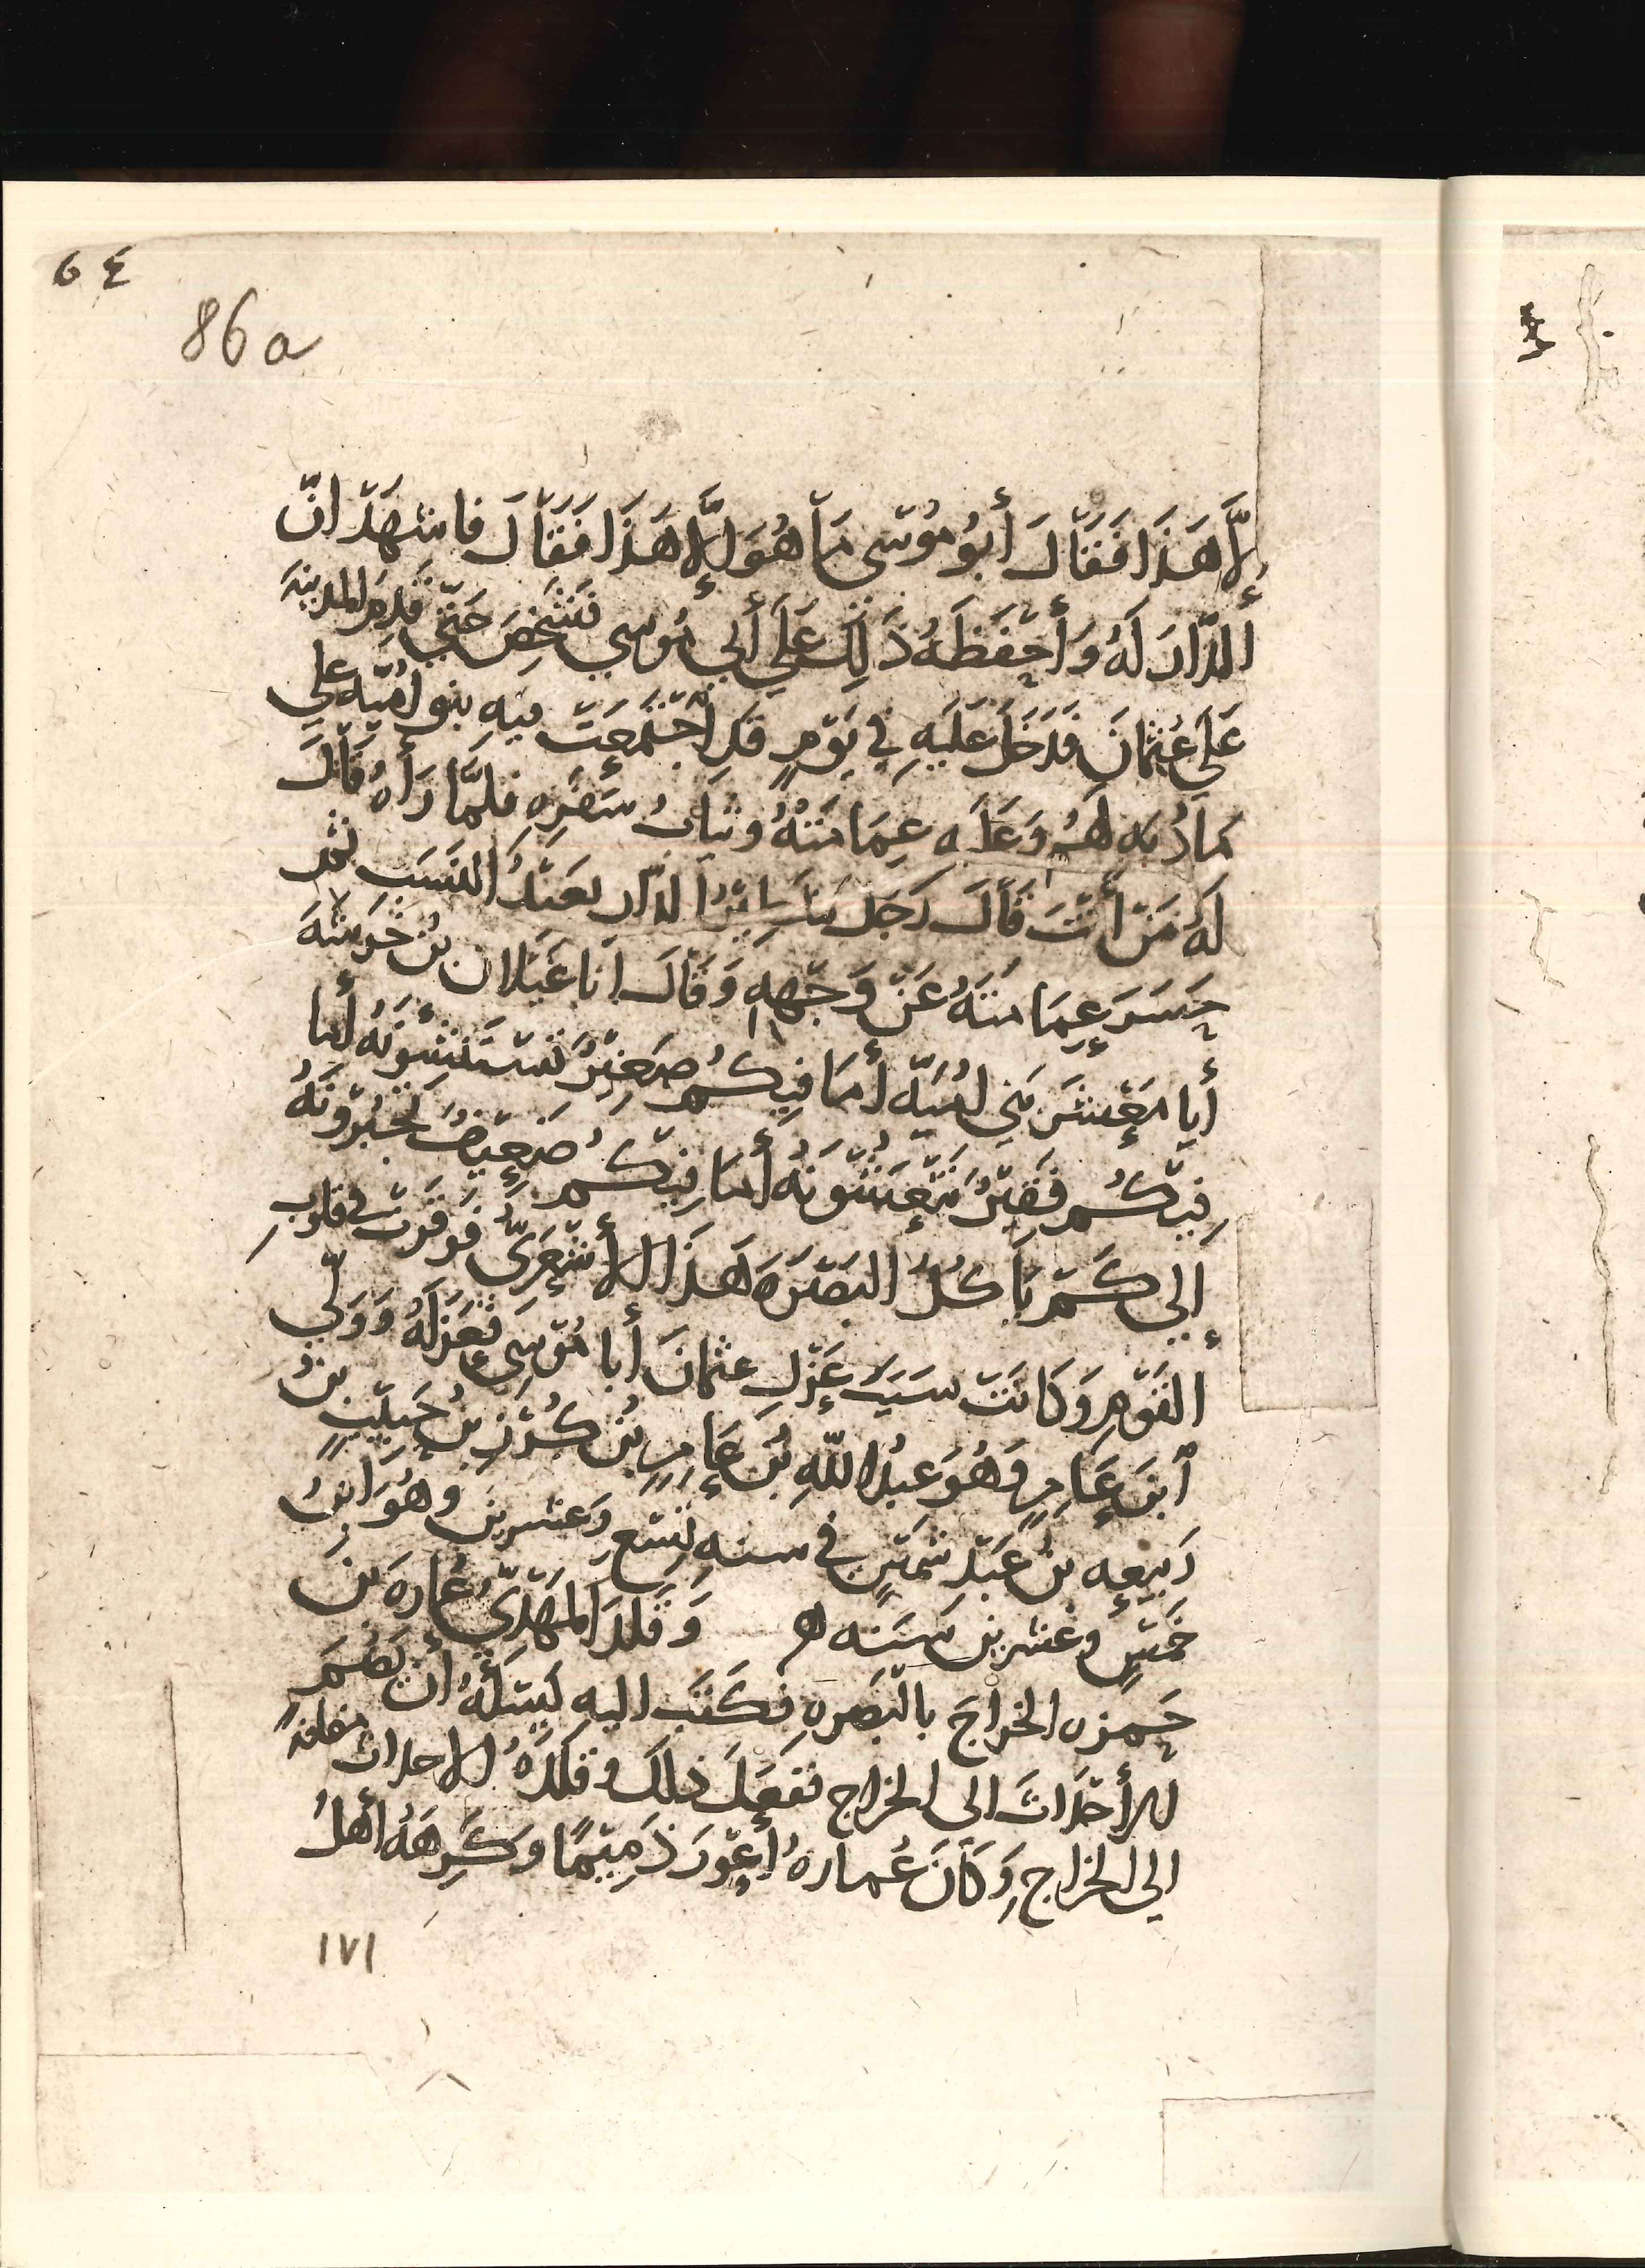 ٤ 6
86a
إِلَّا هَذَا فَقَالَ أَبُو مُوْسَى مَا هُوَ إِلَّا هَذَا فَقَالَ فاشهَدْ انّ
الدَّارَ لَهُ وَأَحْفَظَهُ ذَلِكَ عَلَى أَبي مُوسي فشَخِصَ حَتَّي قَدِمَ المدينَةَ
عَلَى عُثمانَ فَدَخَلَ عَلَيهِ في يَوْمٍ قَدِ اجْتَمَعَتْ فيهِ بنو امَيّه علي
وَعَلَيه عِمَامَتهُ وثيابُ سَفَرِهِ فلمَّا رَأهُ قَالَ
لَهُ مَنْ أَنْتَ قَالَ رَجَل الدَّار بَعيدُ النسَبِ ثم
حَسَرَ عِمَامتَهُ عَنْ وَجْهِهِ وَقَالَ انا غَيْلان بْن خَرَشَهَ
أَيا مَعْشَرَ بَنِي امُيَّه أَمَا فِيكُم صَغِيْرٌ أَما
فِيْكُم فَقِيْرٌ أَمَا فِيْكُم ضَعِيْفٌ تَجْبُرُونَهُ
إِلى كَمْ يَأكُلُ البَصْرَهَ هَذَا الأَشْعَرِيُّ فوقرَتْ في قلوبِ
القَوْمِ وَكَانَتْ سَبَبَ عَزْلِ عثمانَ أَبا مُوْسَى فَعَزَلَهُ وَوَلّي
ٱبنَ عَامِرٍ وَهُوَ عَبْدُ اللّهِ بْن عَامِرِ بْن كُرَيْزِ بن حَبِيْبِ بْنُ
رَبيعه بْنُ عَبْدِ شَمْسٍ في سنهِ تِسْعٍ وَعشرينَ وهُوَ ابنُ
خَمْسٍ وعشرين سَنَه ه وَقَلدَ المَهْدِيُّ عُمَارهَ بْنَ
حَمزه الخَراجَ بالْبَصرهِ فكَتَبَ اليهِ يَسْئلهُ أن يَضُمَّ
الأَحْدَاثَ الى الخراج فَفَعَلَ ذلكَ وقلدهُ الاحداث مضافة
الى الخراج وَكَانَ عُمارهُ أَعْوَرَ ذَمِيْمًا وَكَرِهَهُ أهلُ
١٧١